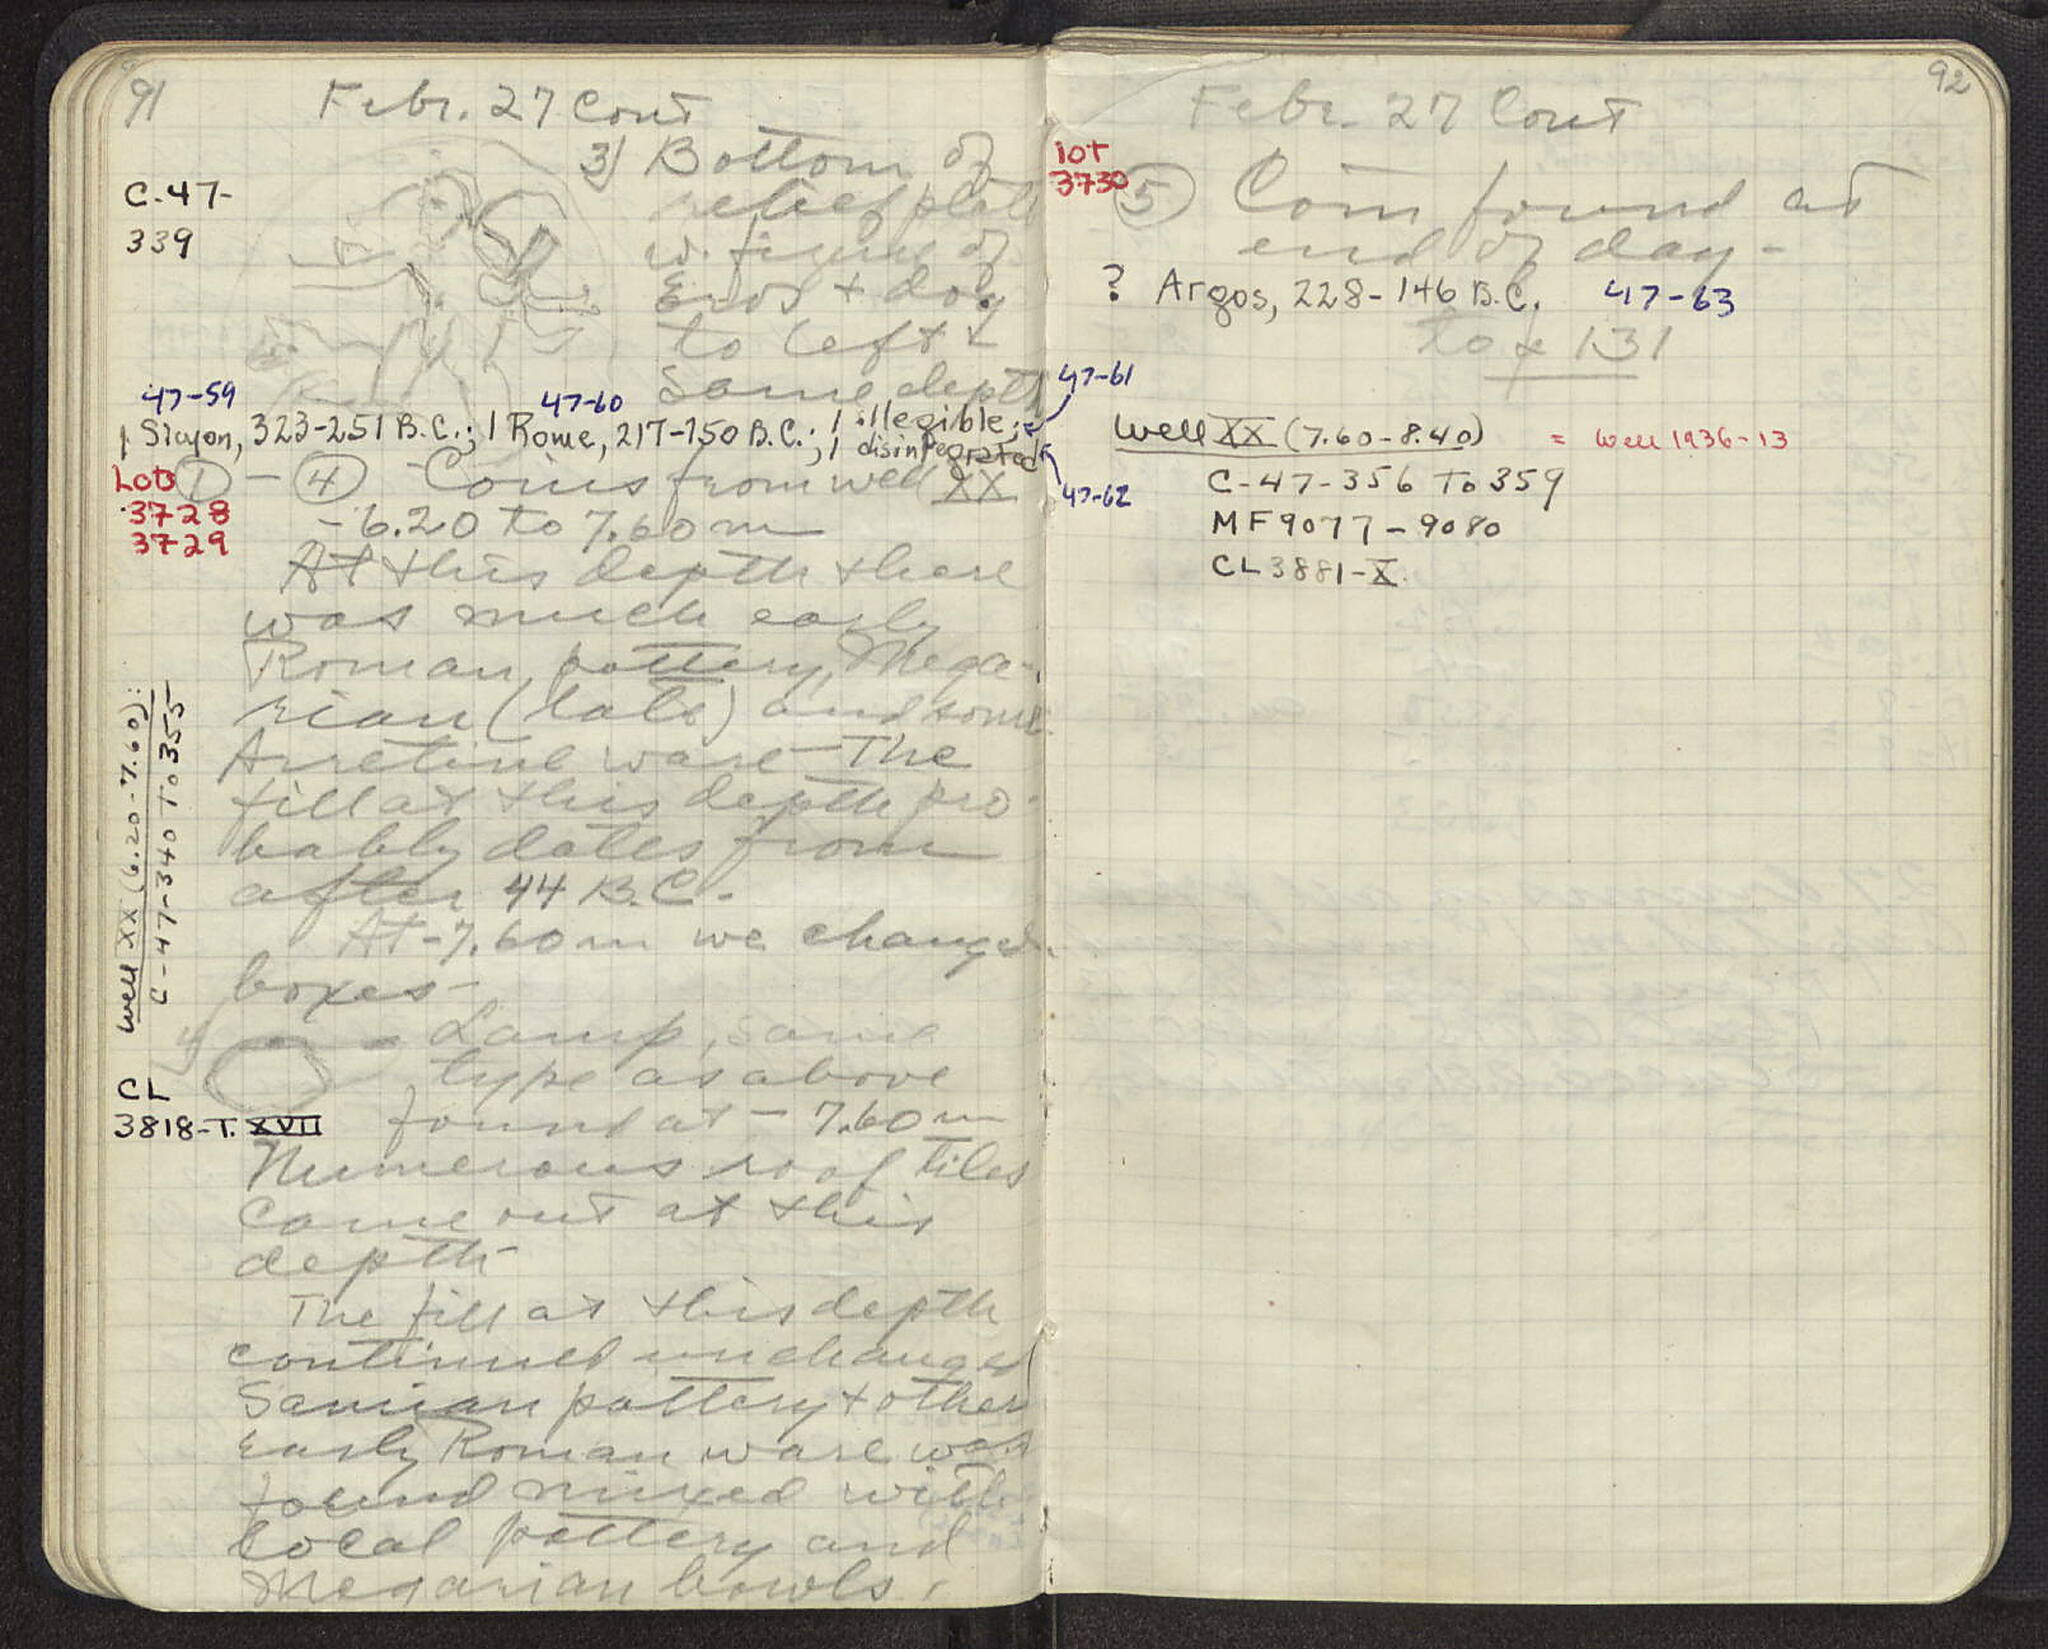 91
Febr. 27 Cont
C-47-
339
3) Bottom of
relief plate
w. figure of
Eros + dog
to left
Same depth
47-59
47-60
1 Sicyon, 323-251 B.C.; 1 Rome, 217-150 B.C.; 1 illegible;
1 disintegrated
Lots
3728
3729
1 - 4 Coins from well XX
-6.20 to 7.60 m
At this depth there
was much early
Roman pottery, Mega-
rian (late) and some
Arretine ware - The
fill at this depth pro-
bably dates from
after 44 B.C.
At -7.60 m we changed
boxes -
Well XX (6.20-7.60):
C-47-340 To 355
4)
Lamp, same
type as above
found at - 7.60 m
CL
3818-T. XVII
Numerous roof tiles
came out at this
depth
The fill at this depth
continued unchanged
Samian pottery + other
early Roman ware was
found mixed with
local pottery and
Megarian bowls.
92
Febr. 27 Cont
Lot
3730
5 Coin found at
end of day -
? Argos, 228-146 B.C. 47-63
to 131
47-61
47-62
Well XX (7.60-8.40) = Well 1936-13
C-47-356 To 359
MF 9077-9080
CL 3881-X.